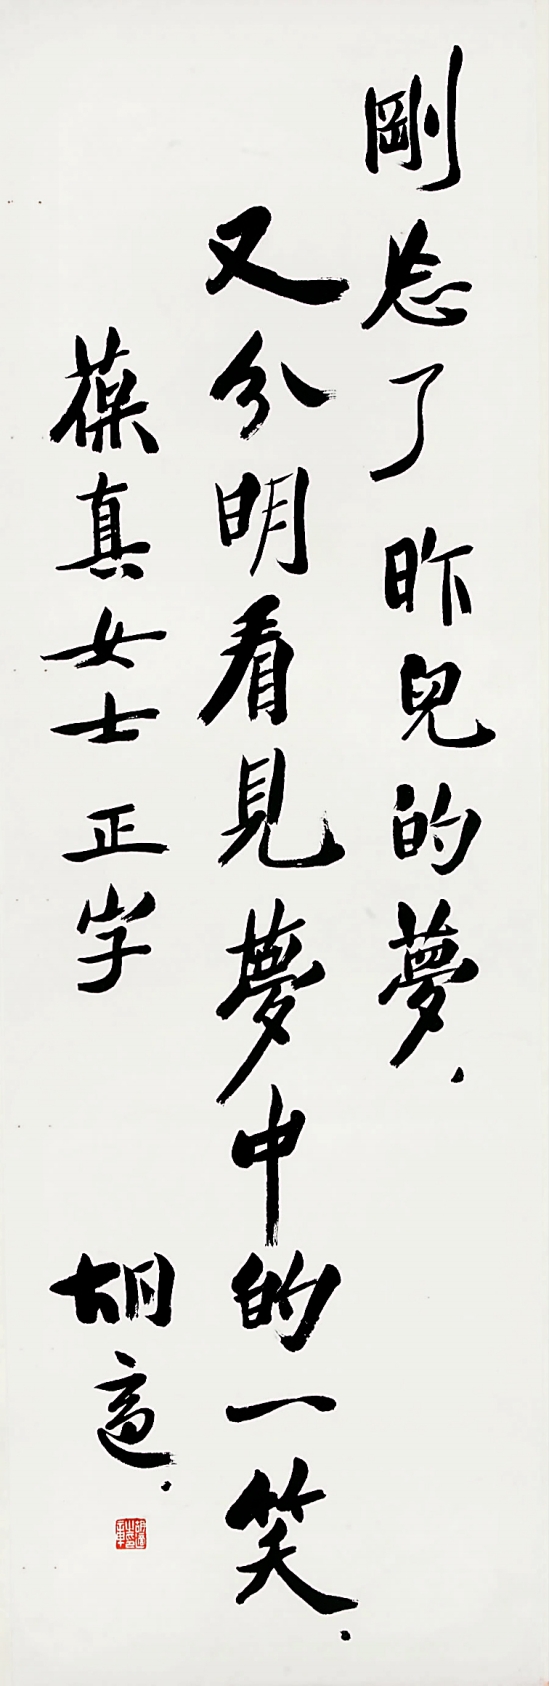 剛忘了昨兒的夢.
又分明看見夢中的一笑.
葆真女士正字
胡適.